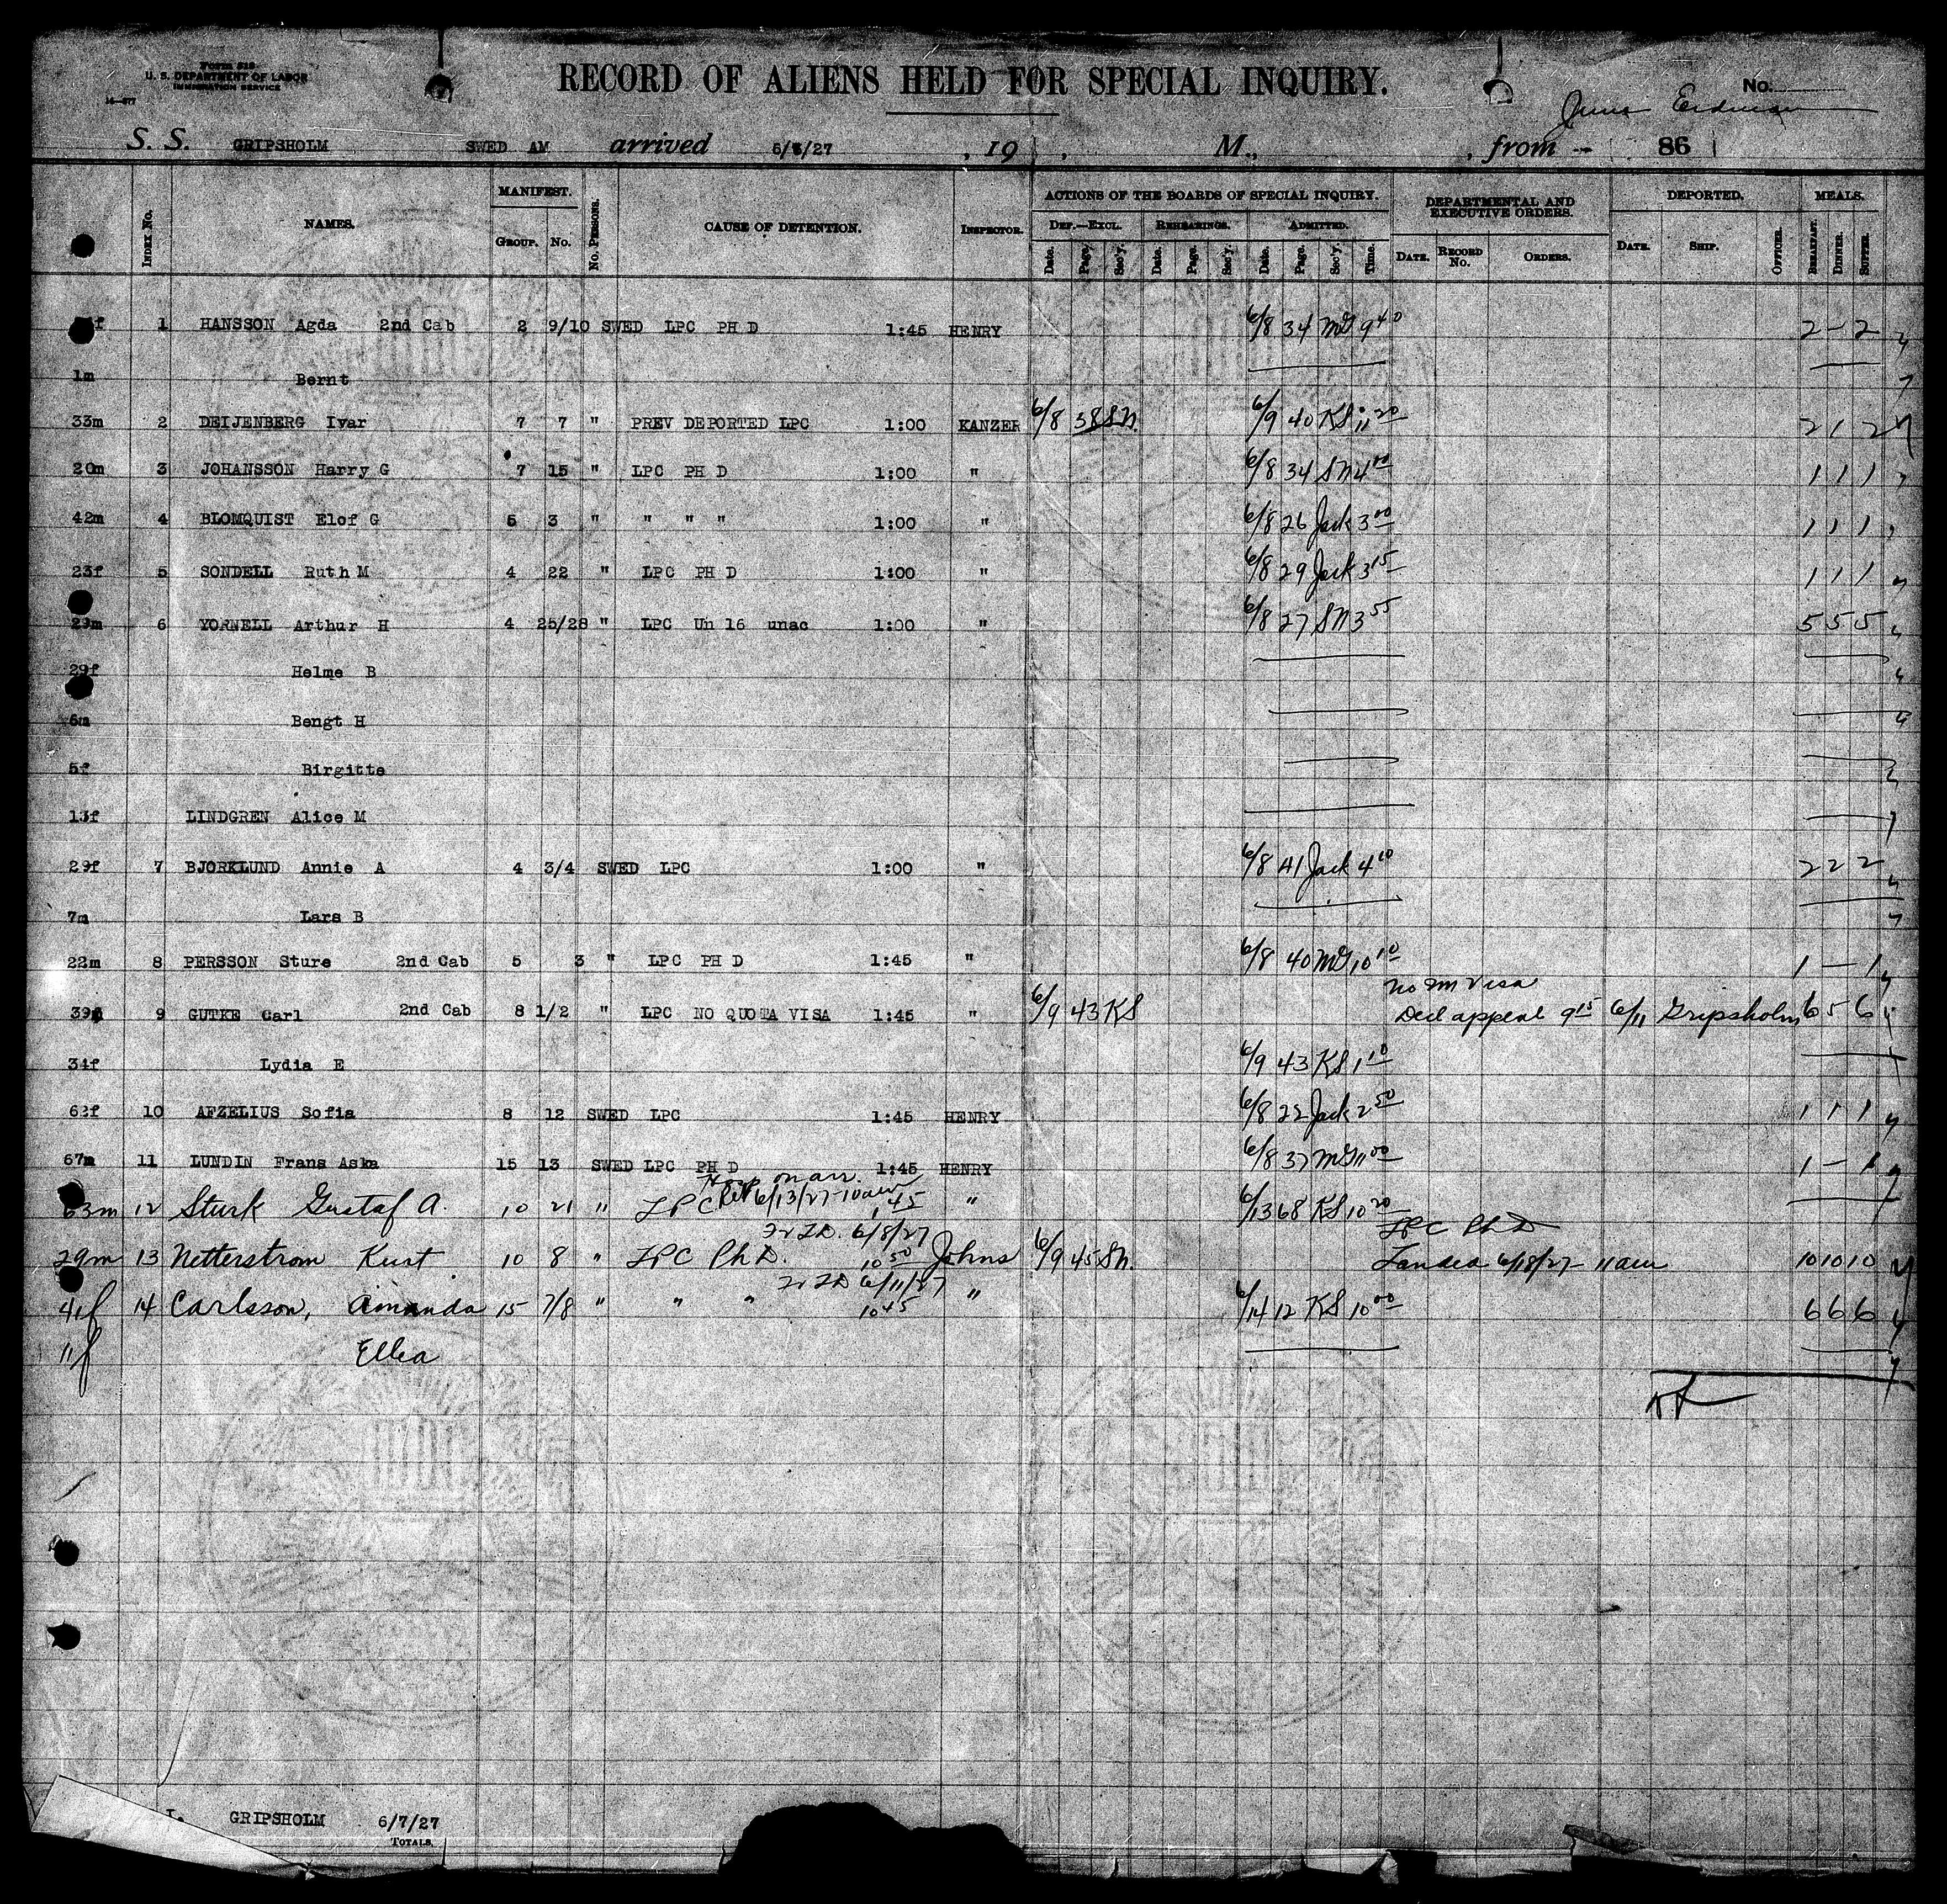 Form 518
U. S. DEPARTMENT OF LABOR
IMMIGRATION SERVICE
RECORD OF ALIENS HELD FOR SPECIAL INQUIRY.
No.
S. S. GRIPSHOLM SWED AM arrived 19 , M., , from 86
INDEX No. NAMES. MANIFEST. GROUP. No. No. PERSONS. CAUSE OF DETENTION. INSPECTOR. ACTIONS OF THE BOARDS OF SPECIAL INQUIRY. DEF.—EXCL. Date. Page. Sec'y. REHEARINGS. Date. Page. Sec'y. ADMITTED. Date. Page. Sec'y. Time. DEPARTMENTAL AND EXECUTIVE ORDERS. DATE. RECORD No. ORDERS. DEPORTED. DATE. SHIP. OFFICER. MEALS. BREAKFAST. DINNER. SUPPER.
1 HANSSON Agda 2nd Cab 2 9/10 SWED LPC PH D 1:45 HENRY 6/8 34 9 40 2 - 2
1m Bernt
33m 2 DEIJENBERG Ivar 7 7 " PREV DEPORTED LPC 1:00 KANZER 6/8 38 SN. 6/9 40 KS 11 20 2 1 2
20m 3 JOHANSSON Harry G 7 15 " LPC PH D 1:00 " 6/8 34 SN 4 00 1 1 1
42m 4 BLOMQUIST Elof G 5 3 " " " " 1:00 " 6/8 26 Jack 3 00 1 1 1
23f 5 SONDELL Ruth M 4 22 " LPC PH D 1:00 " 6/8 29 Jack 3 15 1 1 1
29m 6 YORNELL Arthur H 4 25/28 " LPC Un 16 unac 1:00 " 6/8 27 SN 3 55 5 5 5
29f Helme B
6m Bengt H
5f Birgitte
13f LINDGREN Alice M
29f 7 BJORKLUND Annie A 4 3/4 SWED LPC 1:00 " 6/8 41 Jack 4 10 2 2 2
7m Lars B
22m 8 PERSSON Sture 2nd Cab 5 3 " LPC PH D 1:45 " 6/8 40 10 10 1 - 1
no Im Visa
39m 9 GUTKE Carl 2nd Cab 8 1/2 " LPC NO QUOTA VISA 1:45 " 6/9 43 KS Decl appeal 9 15 6/11 Gripsholm 6 5 6
34f Lydia E 6/9 43 KS 1 10
62f 10 AFZELIUS Sofia 8 12 SWED LPC 1:45 HENRY 6/8 22 Jack 2 50 1 1 1
67m 11 LUNDIN Frans Aska 15 13 SWED LPC PH D 1:45 HENRY 6/8 37 11 00 1 - 1
Hosp on arr.
63m 12 Sturk Gustaf A. 10 21 " LPC Rel 6/13/27 - 10am 1 45 " 6/13 68 KS 10 20
6/8/27 LPC Ph D
29m 13 Netterstrom Kurt 10 8 " LPC Ph D. 10 50 Johns 6/9 45 SN. Landed 6/18/27 - 11am 10 10 10
6/11/27
41f 14 Carlsson, Amanda 15 7/8 " " " 10 45 " 6/14 12 KS 10 00 6 6 6
11f Ellea
GRIPSHOLM 6/7/27
TOTALS.